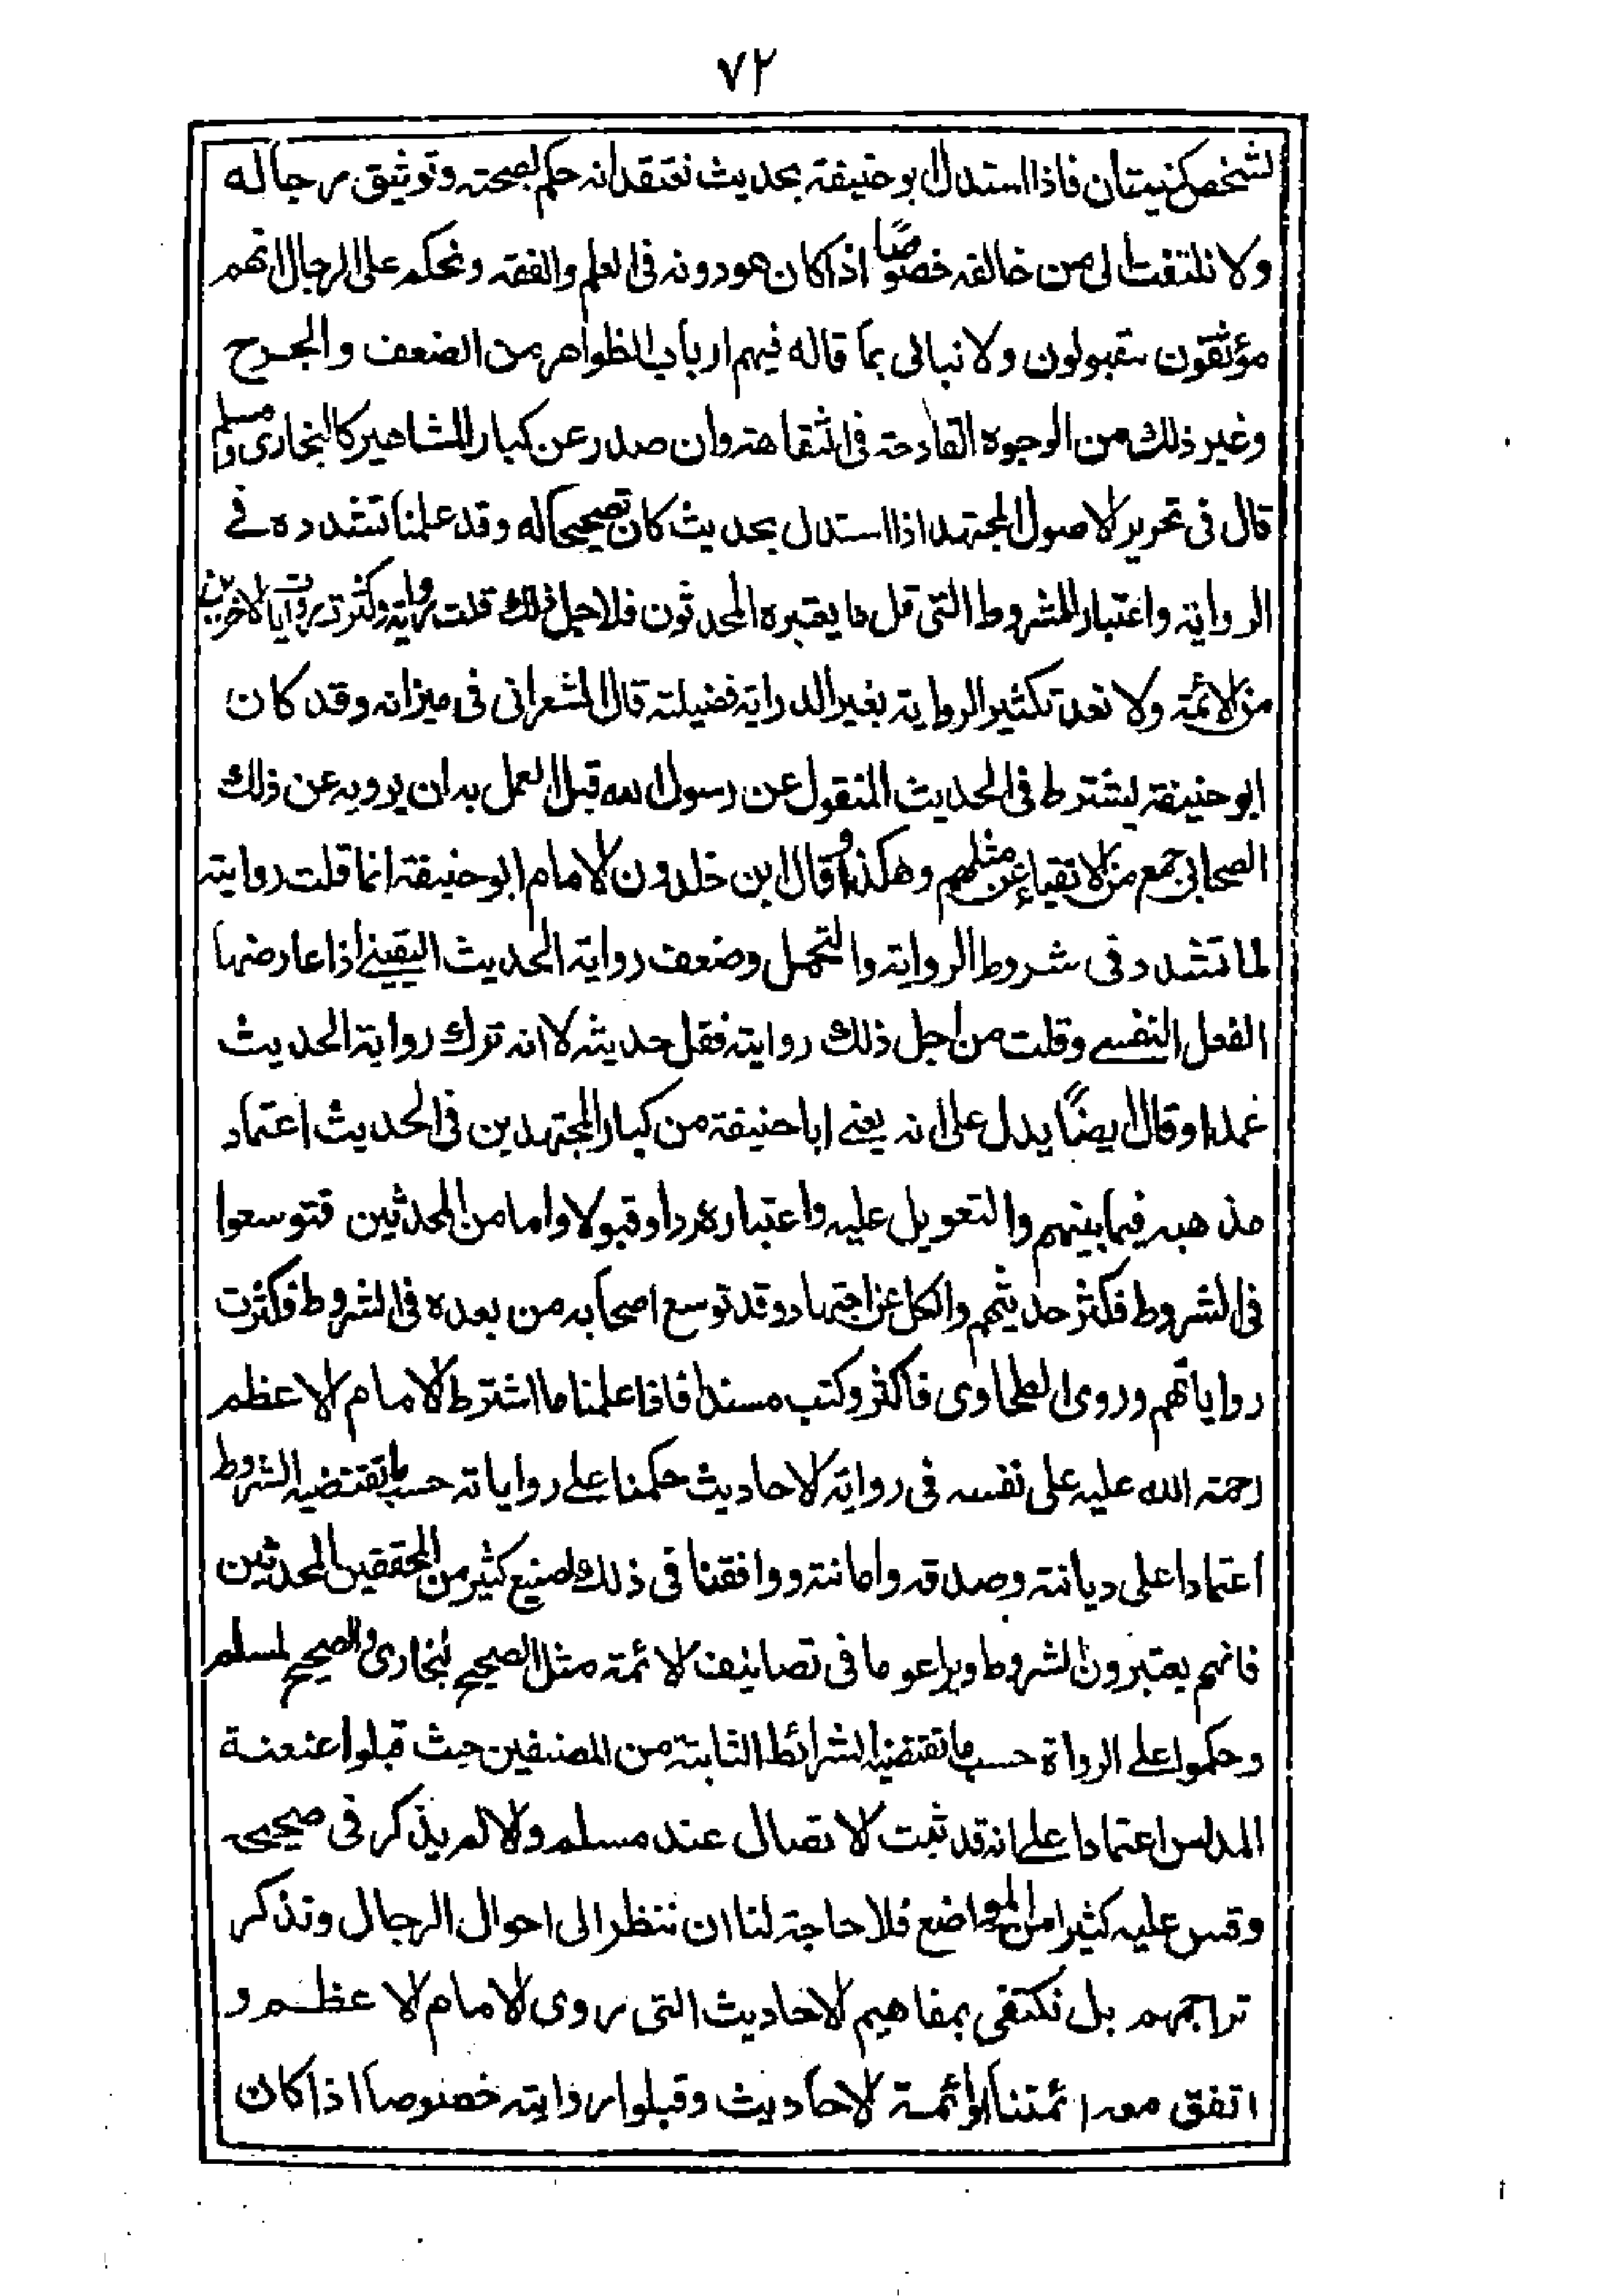 ٧٢
لشخص كنيتان فاذا استدل ابو حنيفة بحديث نعتقد انه حكم بصحته وتوثيق رجاله
ولا نلتفت الى من خالفه خصوصًا اذا كان هو دونه فى العلم والفقه ونحكم على الرجال انهم
مؤثقون مقبولون ولا نبالى بما قاله فيهم ارباب الظواهر من الضعف والجرح
وغير ذلك من الوجوه القادحة فى الثقاهة وان صدر عن كبار المشاهير كالبخارى ومسلم
قال فى تحرير الاصول المجتهد اذا استدل بحديث كان تصحيحا له وقد علمنا تشدده فى
الرواية واعتبار الشروط التى قل ما يعتبره المحدثون فلاجل ذلك قلت روايته وكثرت روايات الاخرين
من الائمة ولا نعد تكثير الرواية بغير الدراية فضيلة قال الشعرانى فى ميزانه وقد كان
ابو حنيفة يشترط فى الحديث المنقول عن رسول الله قبل العمل به ان يرويه عن ذلك
الصحابى جمع من الاتقياء عن مثلهم وهكذا وقال ابن خلدون الامام ابو حنيفة انما قلت روايته
لما تشدد فى شروط الرواية والتحمل وضعف رواية الحديث اليقينى اذا عارضها
الفعل النفسى وقلت من اجل ذلك روايته فقل حديثه لا انه ترك رواية الحديث
عمدا وقال ايضًا يدل على انه يعنى ابا حنيفة من كبار المجتهدين فى الحديث اعتماد
مذهبه فيما بينهم والتعويل عليه واعتباره ردا وقبولا واما من المحدثين فتوسعوا
فى الشروط فكثر حديثهم والكل عن اجتهاد وقد توسع اصحابه من بعده فى الشروط فكثرت
رواياتهم وروى الطحاوى فاكثر وكتب مسندا فاذا علمنا ما اشترط الامام الاعظم
رحمة الله عليه على نفسه فى رواية الاحاديث حكمنا على رواياته حسب ما تقتضيه الشروط
اعتمادا على ديانته وصدقه وامانته ووافقنا فى ذلك صنيع كثير من المحققين المحدثين
فانهم يعتبرون الشروط ويراعو ما فى تصانيف الائمة مثل الصحيح لبخارى والصحيح لمسلم
وحكموا على الرواة حسب ما تقتضيه الشرائط الثابتة من المصنفين حيث قبلوا عنعنة
المدلس اعتمادا على انه قد ثبت الاتصال عند مسلم والا لم يذكر فى صحيحه
وقس عليه كثيرا من المواضع فلا حاجة لنا ان ننظر الى احوال الرجال ونذكر
تراجمهم بل نكتفى بمفاهيم الاحاديث التى روى الامام الاعظم و
اتفق معه ائمتنا وائمة الاحاديث وقبلوا روايته خصوصا اذا كان